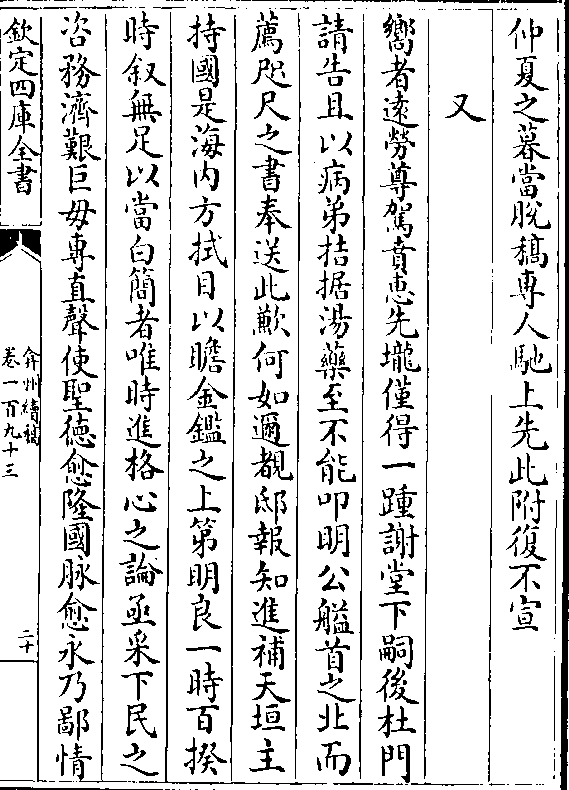 仲夏之暮當脫稿専人馳上先此附復不宣
又
嚮者逺勞尊駕賁恵先壠僅得一踵謝堂下嗣後杜門
請告且以病弟拮据湯藥至不能叩明公艗首之北而
薦咫尺之書奉送此歉何如邇覩邸報知進補天垣主
持國是海内方拭目以瞻金鑑之上第明良一時百揆
時叙無足以當白簡者唯時進格心之論亟采下民之
咨務濟艱巨毋専直聲使聖徳愈隆國脉愈永乃鄙情
欽定四庫全書
弇州續稿
卷一百九十三
二十